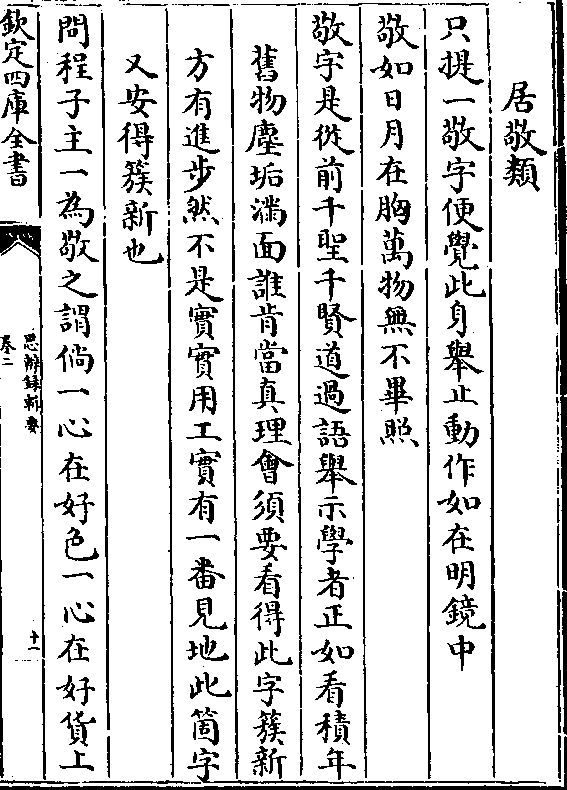 居敬類
只提一敬字便覺此身舉止動作如在明鏡中
敬如日月在胸萬物無不畢照
敬字是從前千聖千賢道過語舉示學者正如看積年
舊物塵垢滿面誰肯當真理會須要看得此字簇新
方有進步然不是實實用工實有一番見地此箇字
又安得簇新也
問程子主一為敬之謂倘一心在好色一心在好貨上
欽定四庫全書
思辨録輯要
卷二
十一